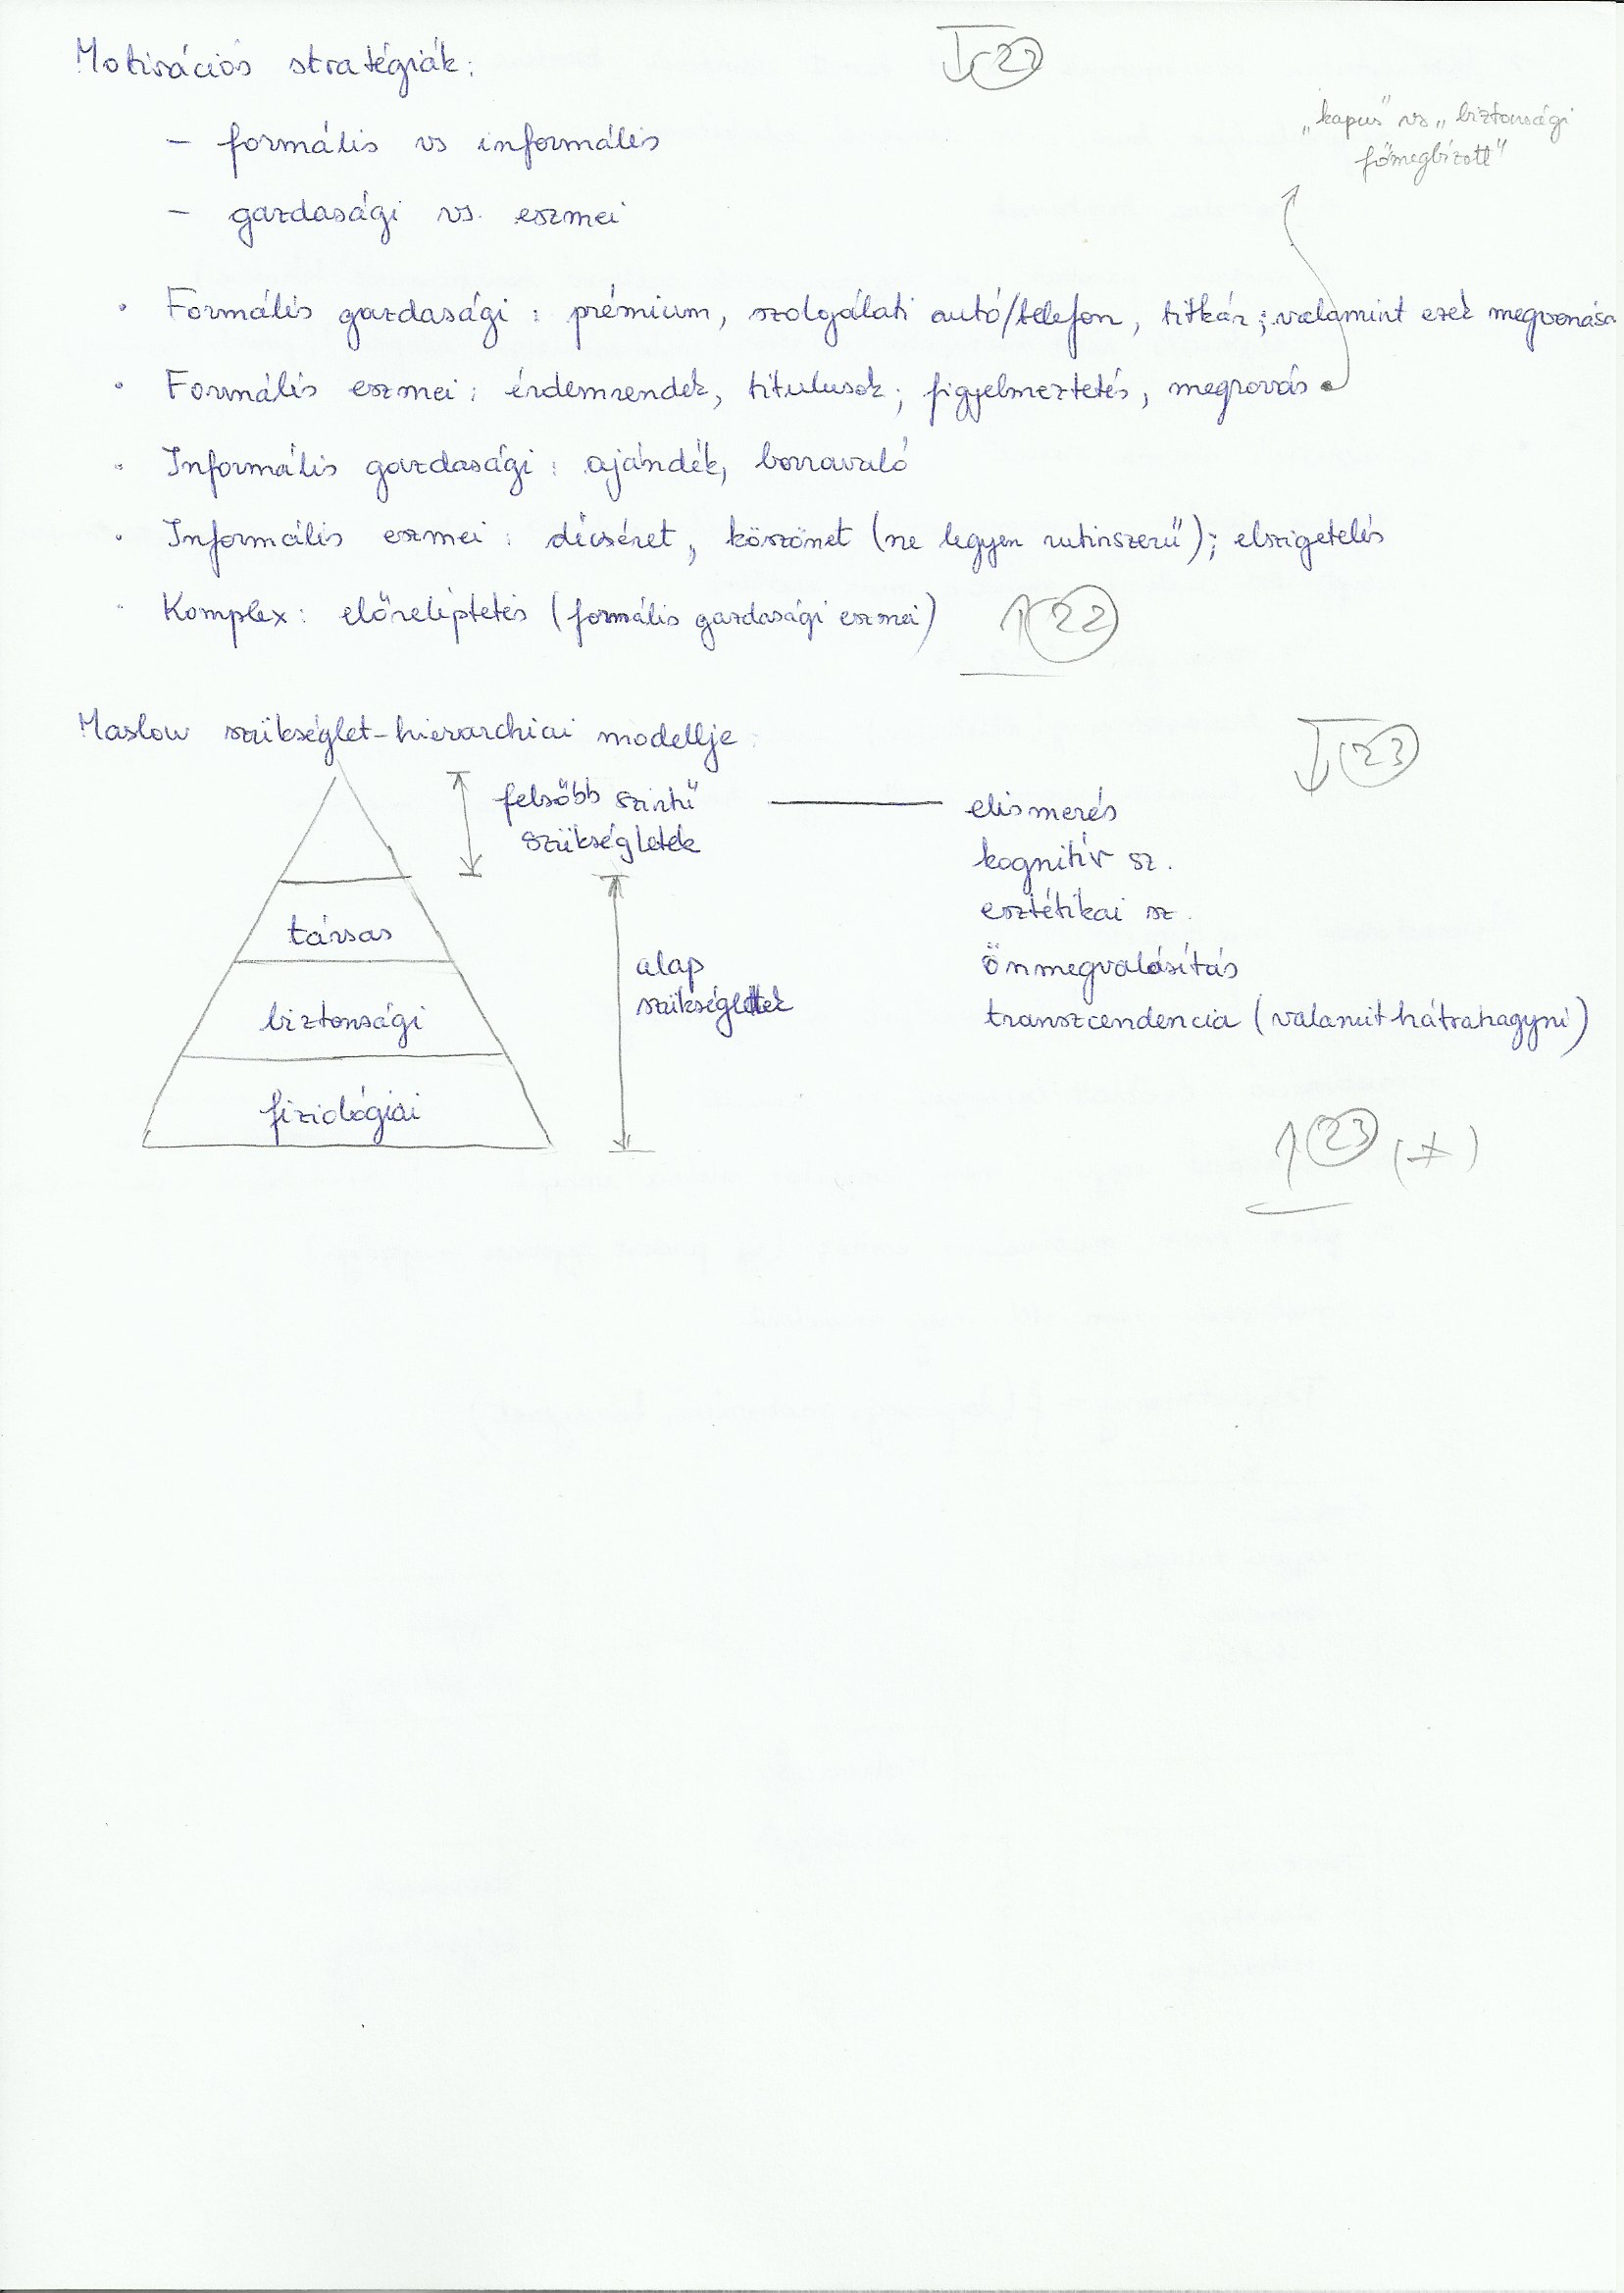 Motivációs stratégiák:
↓22
„kapus" vs „biztonsági
főmegbízott"
– formális vs informális
– gazdasági vs. eszmei
• Formális gazdasági: prémium, szolgálati autó/telefon, titkár; valamint ezek megvonása
• Formális eszmei: érdemrendek, titulusok; figyelmeztetés, megrovás
• Informális gazdasági: ajándék, borravaló
• Informális eszmei: dícséret, köszönet (ne legyen rutinszerű); elszigetelés
• Komplex: előreléptetés (formális gazdasági eszmei)
↑22
Maslow szükséglet-hierarchiai modellje:
↓23
felsőbb szintű
szükségletek
elismerés
kognitív sz.
esztétikai sz.
önmegvalósítás
transzcendencia (valamit hátrahagyni)
társas
biztonsági
fiziológiai
alap
szükségletek
↑23